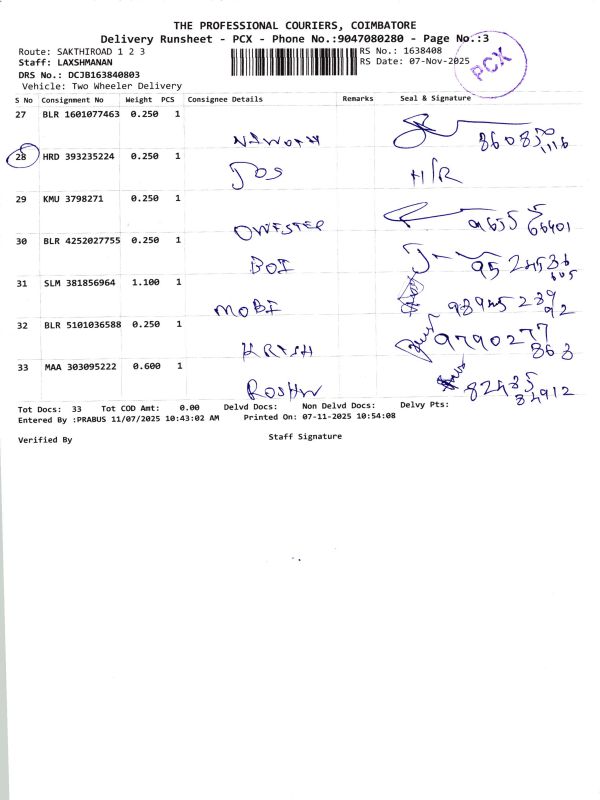 THE PROFESSIONAL COURIERS, COIMBATORE
Delivery Runsheet - PCX - Phone No.:9047080280 - Page No.:3
Route: SAKTHIROAD 1 2 3
RS No.: 1638408
Staff: LAXSHMANAN
RS Date: 07-Nov-2025
PCX
DRS No.: DCJB163840803
Vehicle: Two Wheeler Delivery
S No Consignment No Weight PCS Consignee Details Remarks Seal & Signature
27 BLR 1601077463 0.250 1
28 HRD 393235224 0.250 1
JOS H/R
29 KMU 3798271 0.250 1
30 BLR 4252027755 0.250 1
BOI
31 SLM 381856964 1.100 1
MOBI
32 BLR 5101036588 0.250 1
KRISH 9790277
863
33 MAA 303095222 0.600 1
82485
84912
Tot Docs: 33 Tot COD Amt: 0.00 Delvd Docs: Non Delvd Docs: Delvy Pts:
Entered By :PRABUS 11/07/2025 10:43:02 AM Printed On: 07-11-2025 10:54:08
Verified By Staff Signature